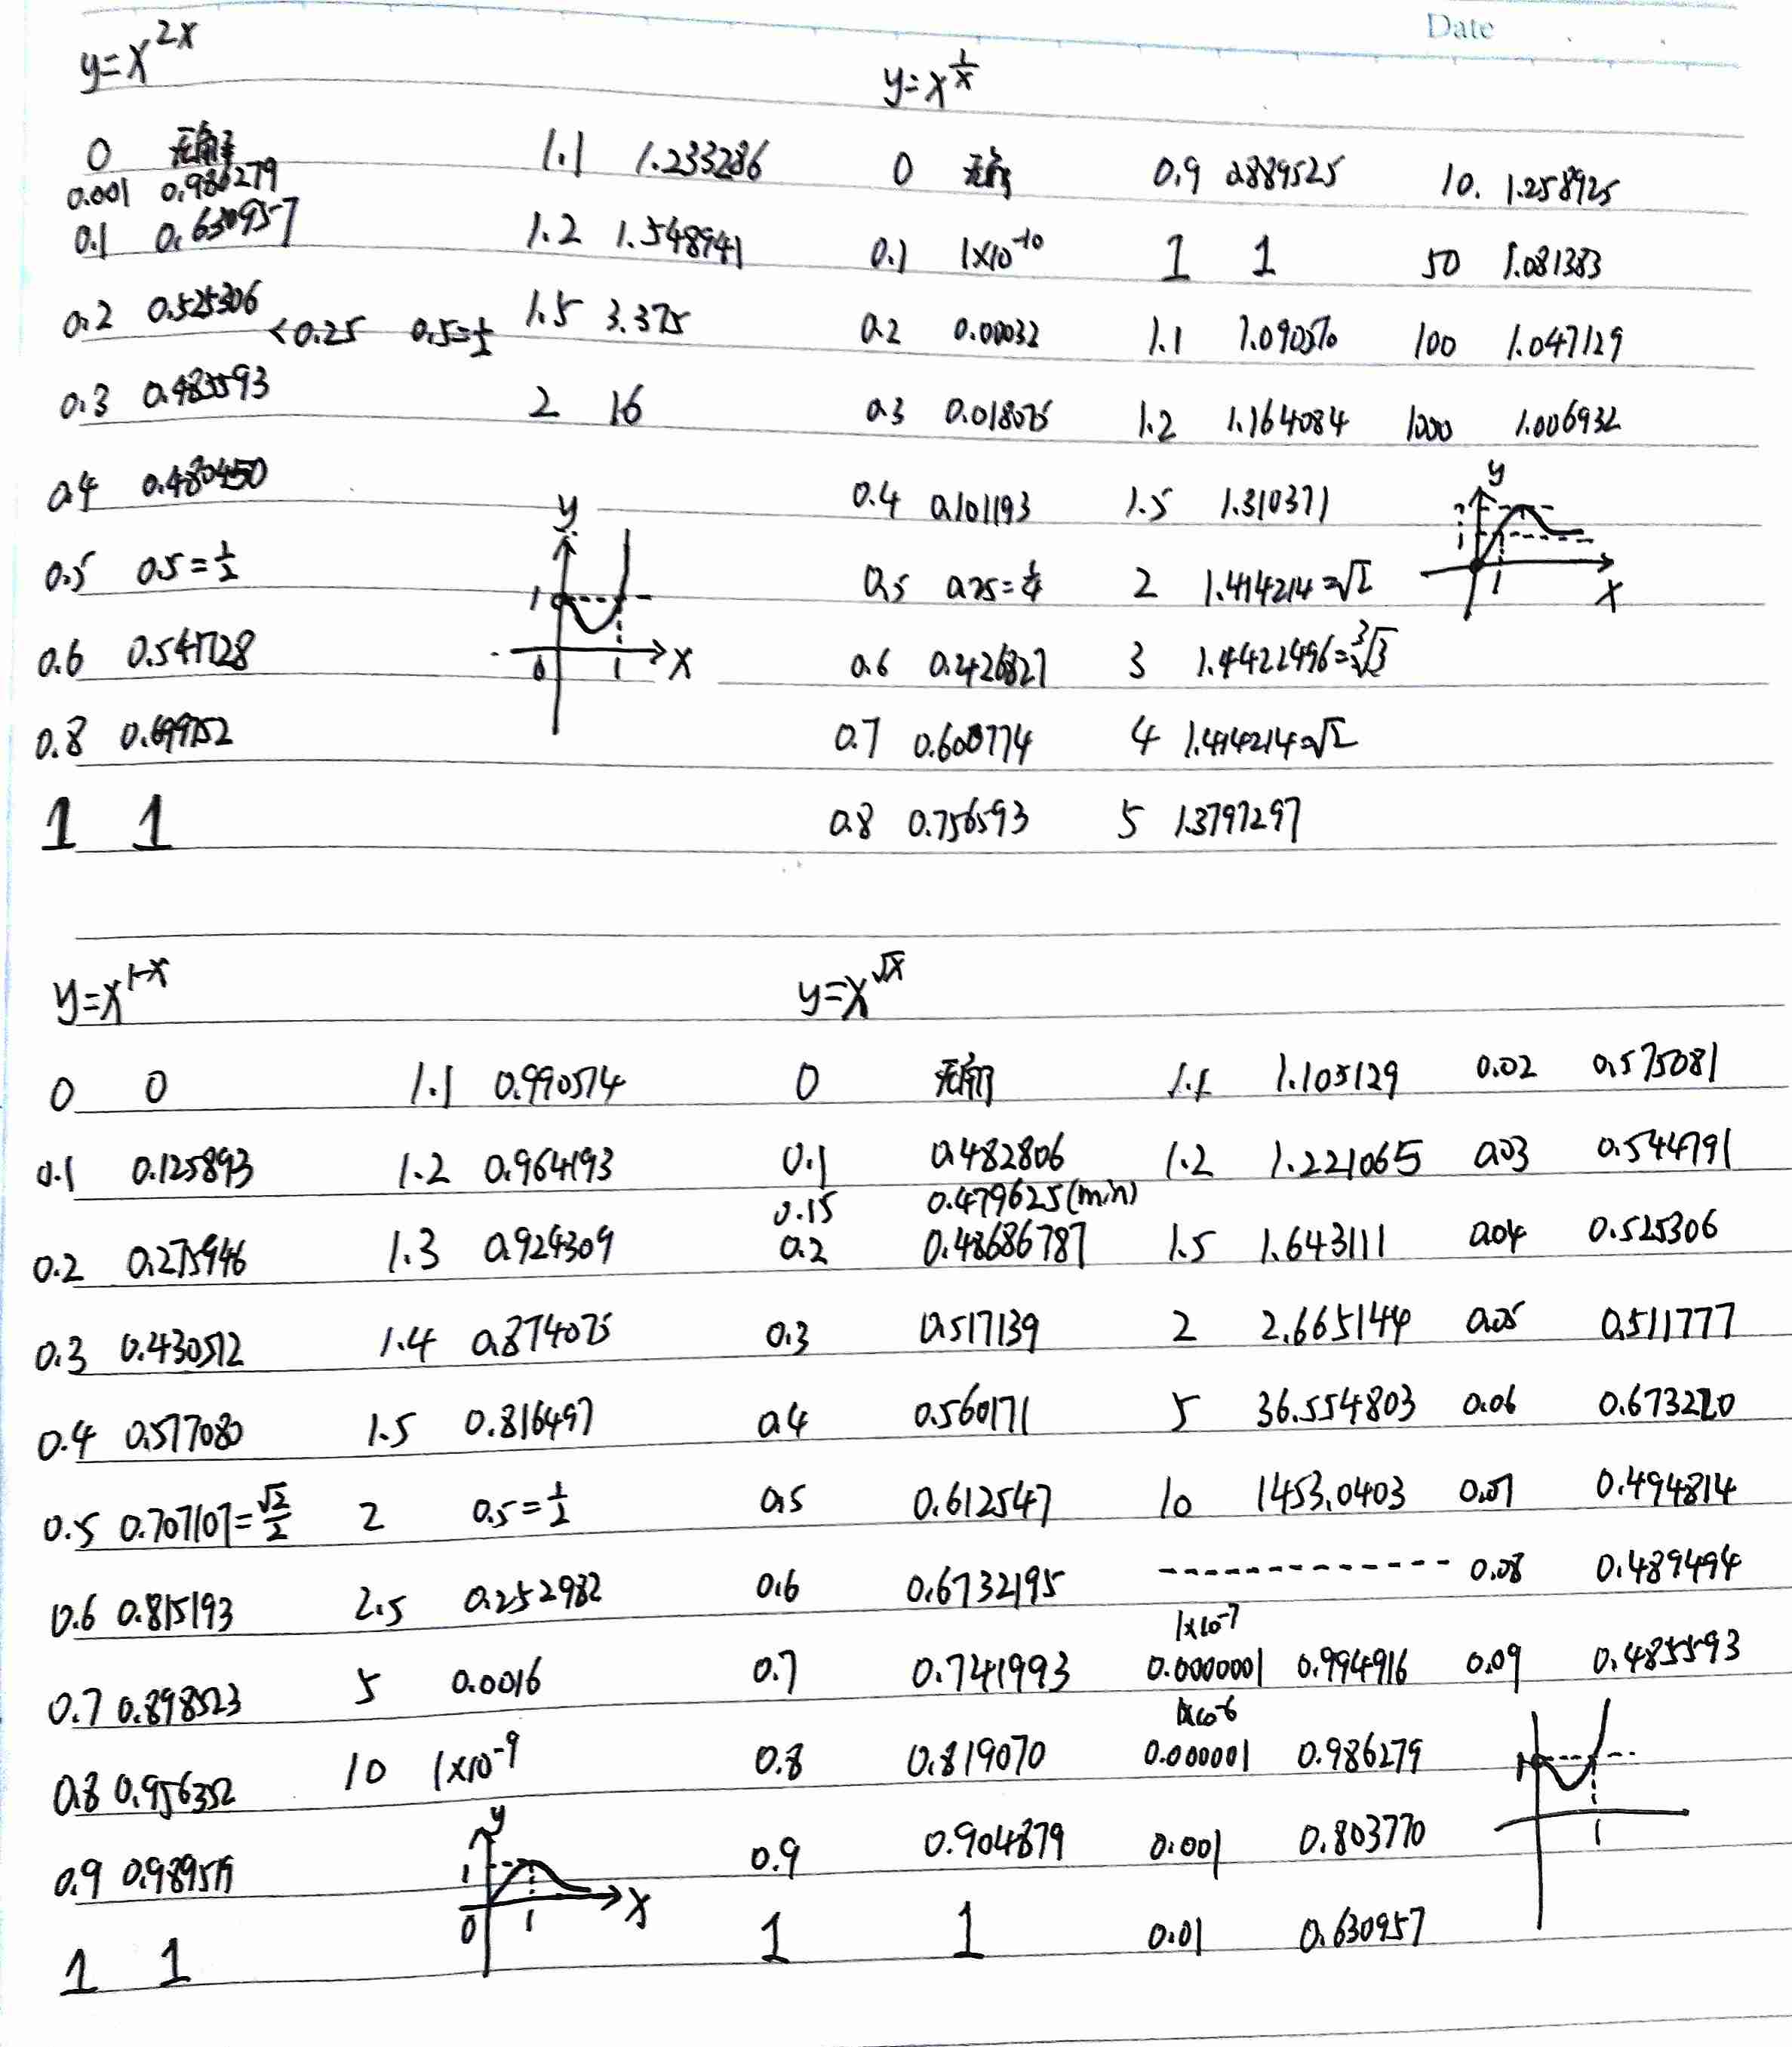 Date
y=x^{2x}
0
0.001 0.986279
0.1 0.630957
0.2 0.525306
<0.25 0.5=1/2
0.3 0.485593
0.4 0.480450
0.5 0.5=1/2
0.6 0.541728
0.8 0.699752
1 1
1.1 1.233286
1.2 1.548941
1.5 3.375
2 16
y
1
0 1 x
y=x^{1/x}
0
0.1 1×10^{-10}
0.2 0.00032
0.3 0.018075
0.4 0.101193
0.5 0.25=1/4
0.6 0.426827
0.7 0.600774
0.8 0.756593
0.9 0.889525
1 1
1.1 1.090370
1.2 1.164084
1.5 1.310371
2 1.414214=√2
3 1.4422496=∛3
4 1.414214=√2
5 1.3797297
10. 1.258925
50 1.081383
100 1.047129
1000 1.006932
y
?
1
1 x
y=x^{1-x}
0 0
0.1 0.125893
0.2 0.275946
0.3 0.430512
0.4 0.577080
0.5 0.707107=√2/2
0.6 0.815193
0.7 0.898523
0.8 0.956352
0.9 0.989519
1 1
1.1 0.990514
1.2 0.964193
1.3 0.924309
1.4 0.874075
1.5 0.816497
2 0.5=1/2
2.5 0.252982
5 0.0016
10 1×10^{-9}
y
1
0 1 x
y=x^{√x}
0
0.1 0.482806
0.15 0.479625(min)
0.2 0.48686787
0.3 0.517139
0.4 0.560171
0.5 0.612547
0.6 0.6732195
0.7 0.741993
0.8 0.819070
0.9 0.904879
1 1
1.1 1.105129
1.2 1.221065
1.5 1.643111
2 2.665144
5 36.554803
10 1453.0403
1×10^{-7}
0.0000001 0.994916
1×10^{-6}
0.000001 0.986279
0.001 0.803770
0.01 0.630957
0.02 0.575081
0.03 0.544791
0.04 0.525306
0.05 0.511777
0.06 0.673220
0.07 0.494814
0.08 0.489494
0.09 0.485593
1
1